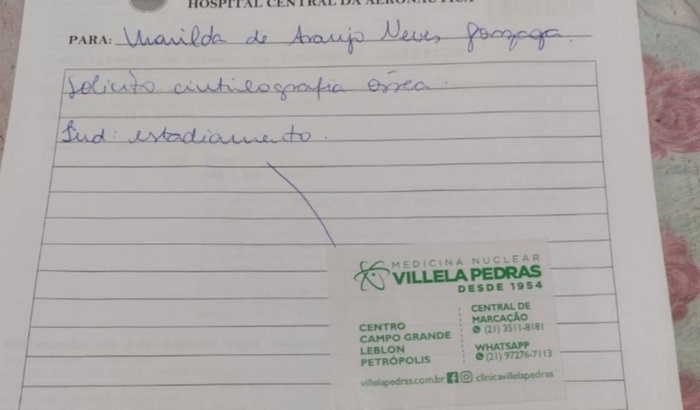 HOSPITAL CENTRAL DA AERONÁUTICA
PARA: Marilda de Araujo Neves Gonzaga.
Solicito cintilografia óssea.
Ind: estadiamento.
MEDICINA NUCLEAR
VILLELA PEDRAS
DESDE 1954
CENTRO
CAMPO GRANDE
LEBLON
PETRÓPOLIS
CENTRAL DE
MARCAÇÃO
(21) 3511-8181
WHATSAPP
(21) 97276-7113
villelapedras.com.br clinicavillelapedras